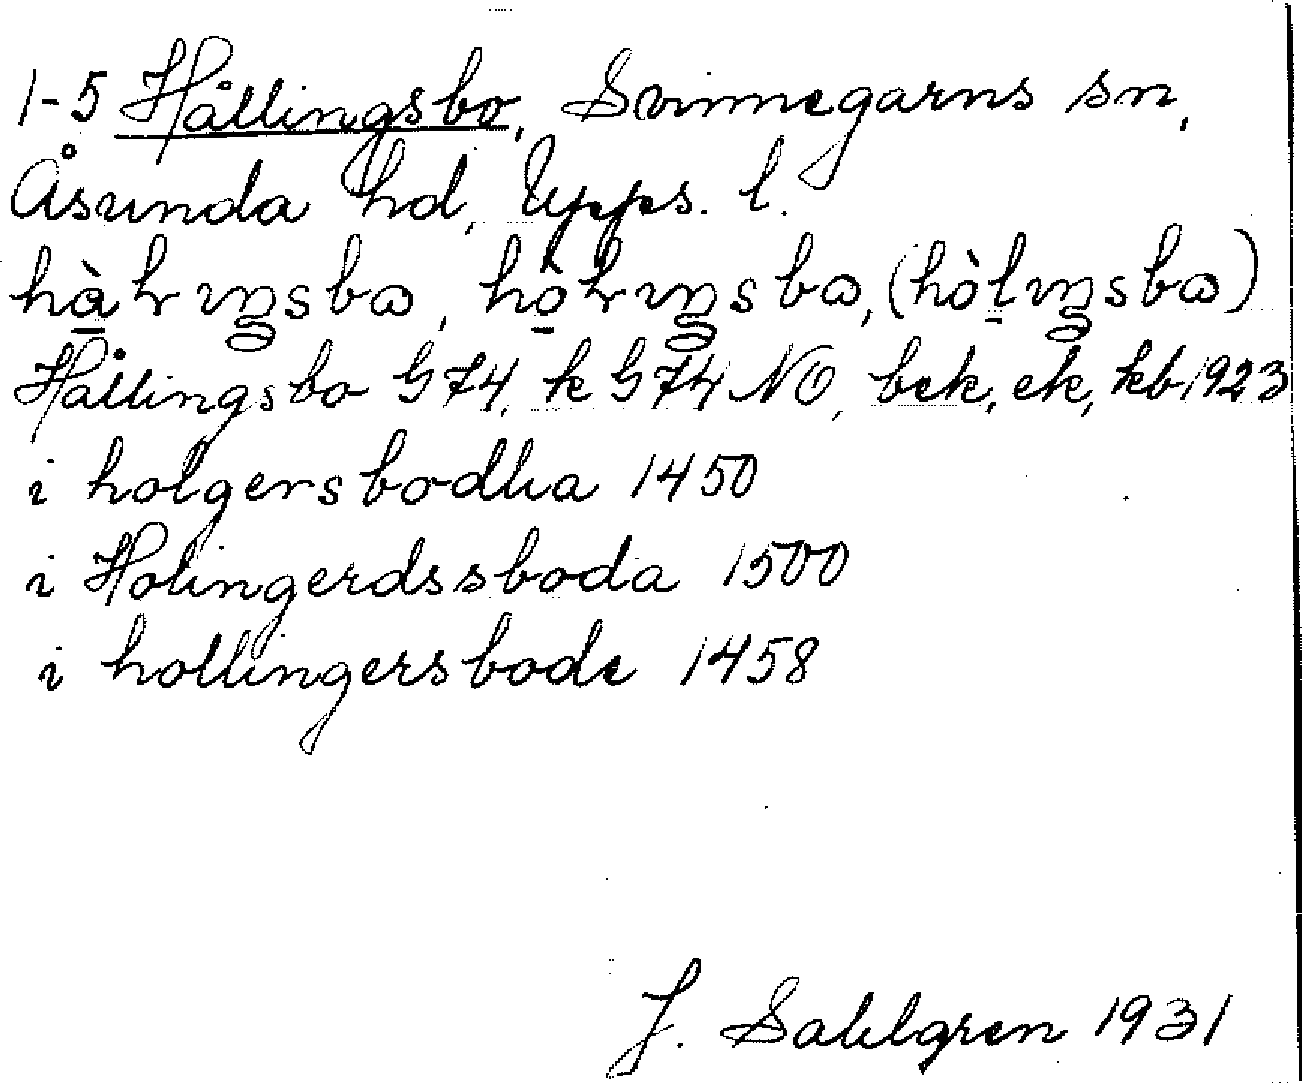 1-5 Hållingsbo, Svinnegarns sn,
Åsunda hd, Upps. l.
hàłıŋsbω, hòłıŋsbω, (hòlıŋsbω)
Hållingsbo G74, k G74 NO, bek, ek, kb 1923
i holgersbodha 1450
i Holingerdssboda 1500
i hollingersbode 1458
J. Sahlgren 1931